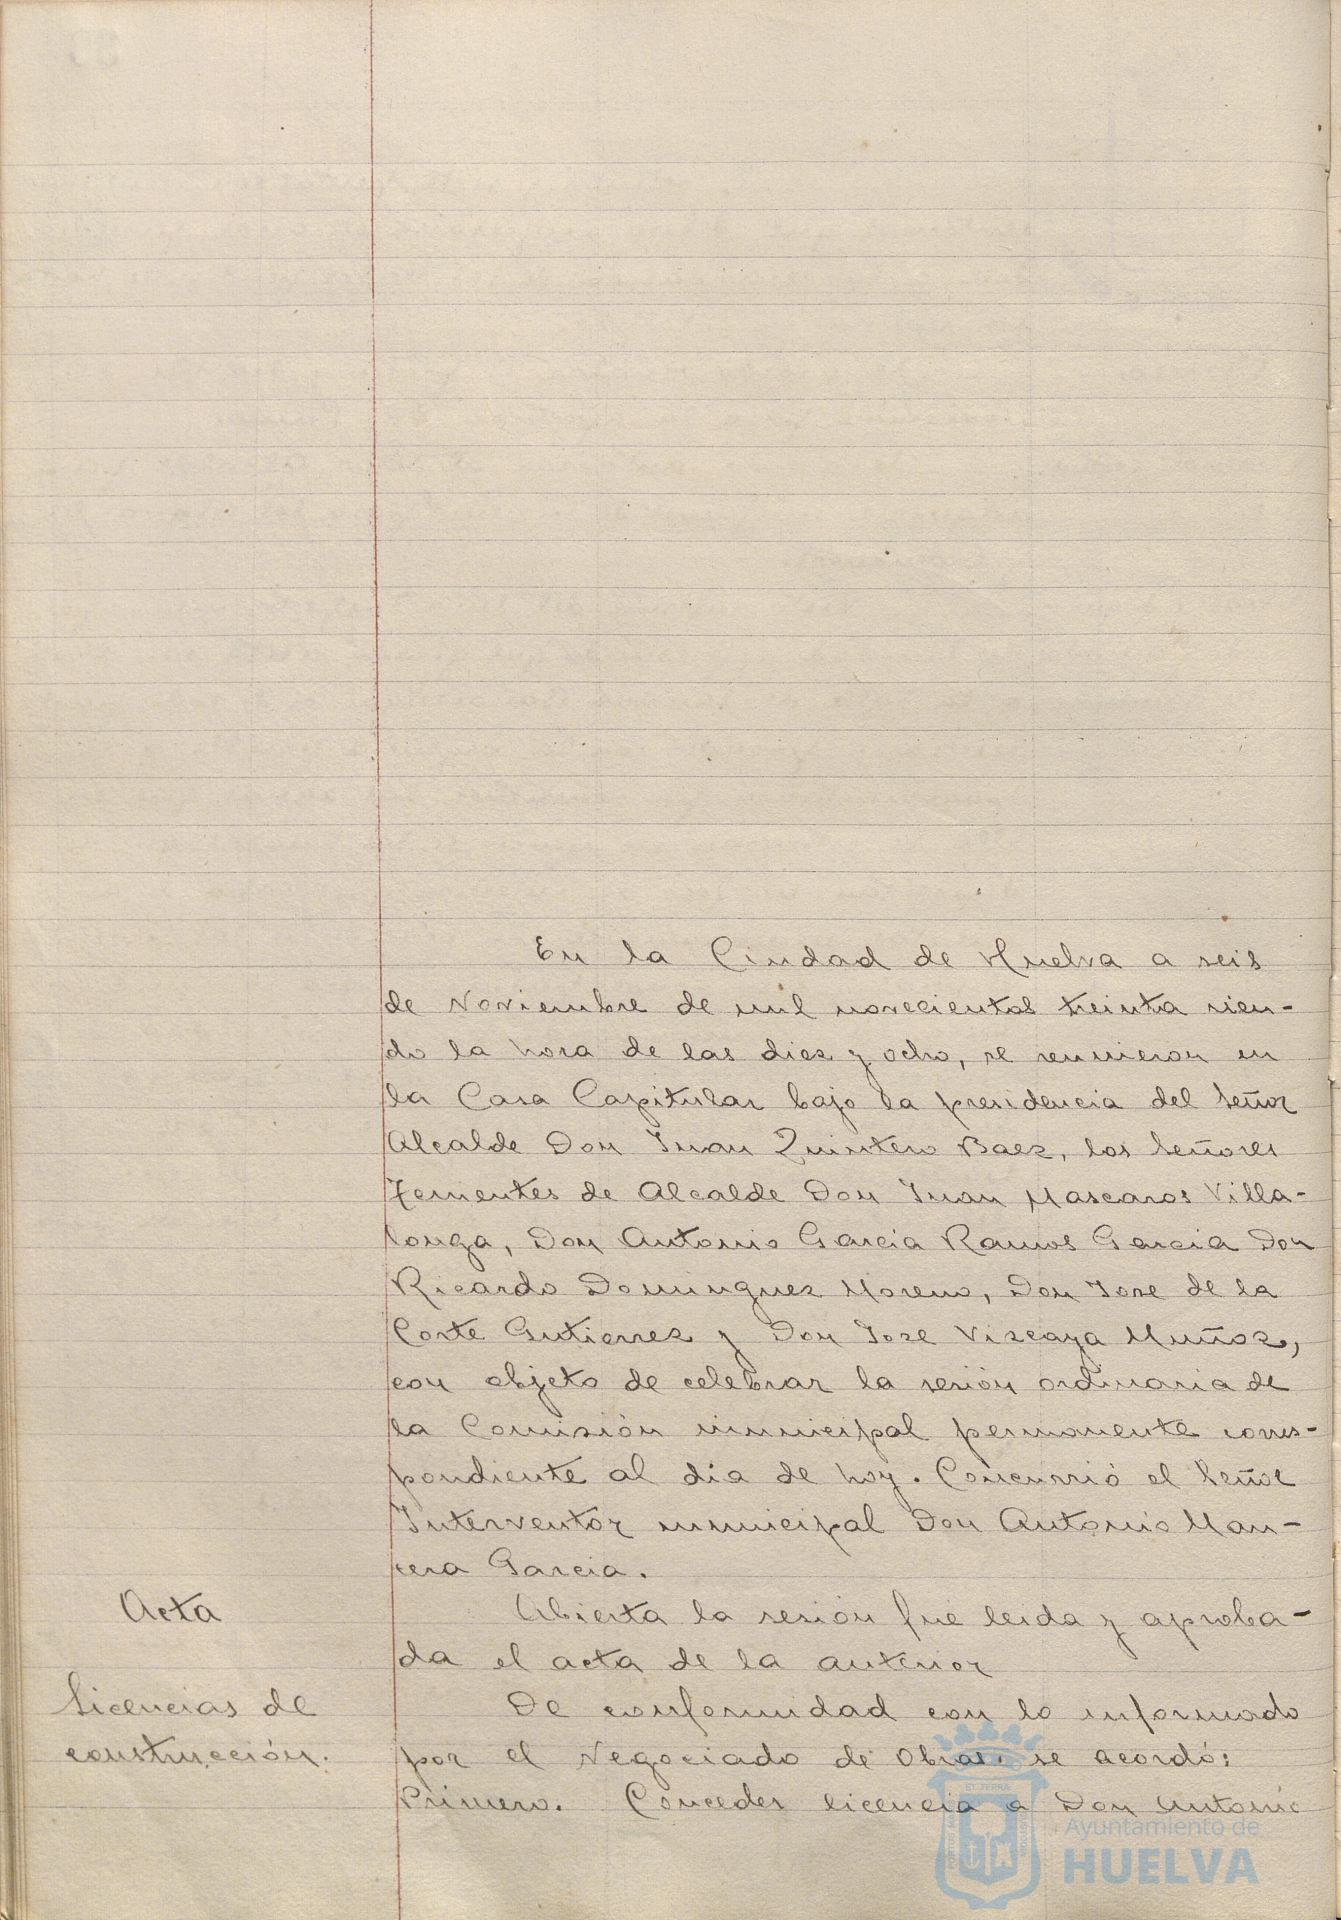 En la Ciudad de Huelva a seis
de Noviembre de mil novecientos treinta sien-
do la hora de las diez y ocho, se reunieron en
la Casa Capitular bajo la presidencia del Señor
Alcalde Don Juan Quintero Baez, los Señores
Tenientes de Alcalde Don Juan Mascaros Villa-
longa, Don Antonio Garcia Ramos Garcia Don
Ricardo Dominguez Moreno, Don Jose de la
Corte Gutierrez y Don Jose Vizcaya Muñoz,
con objeto de celebrar la sesión ordinaria de
la Comisión municipal permanente corres-
pondiente al día de hoy. Concurrió el Señor
Interventor municipal Don Antonio Man-
cera Garcia.
Acta
Abierta la sesión fué leida y aproba-
da el acta de la anterior
Licencias de
construcción.
De conformidad con lo informado
por el Negociado de Obras, se acordó:
Primero. Conceder licencia a Don Antonio
Ayuntamiento de
HUELVA